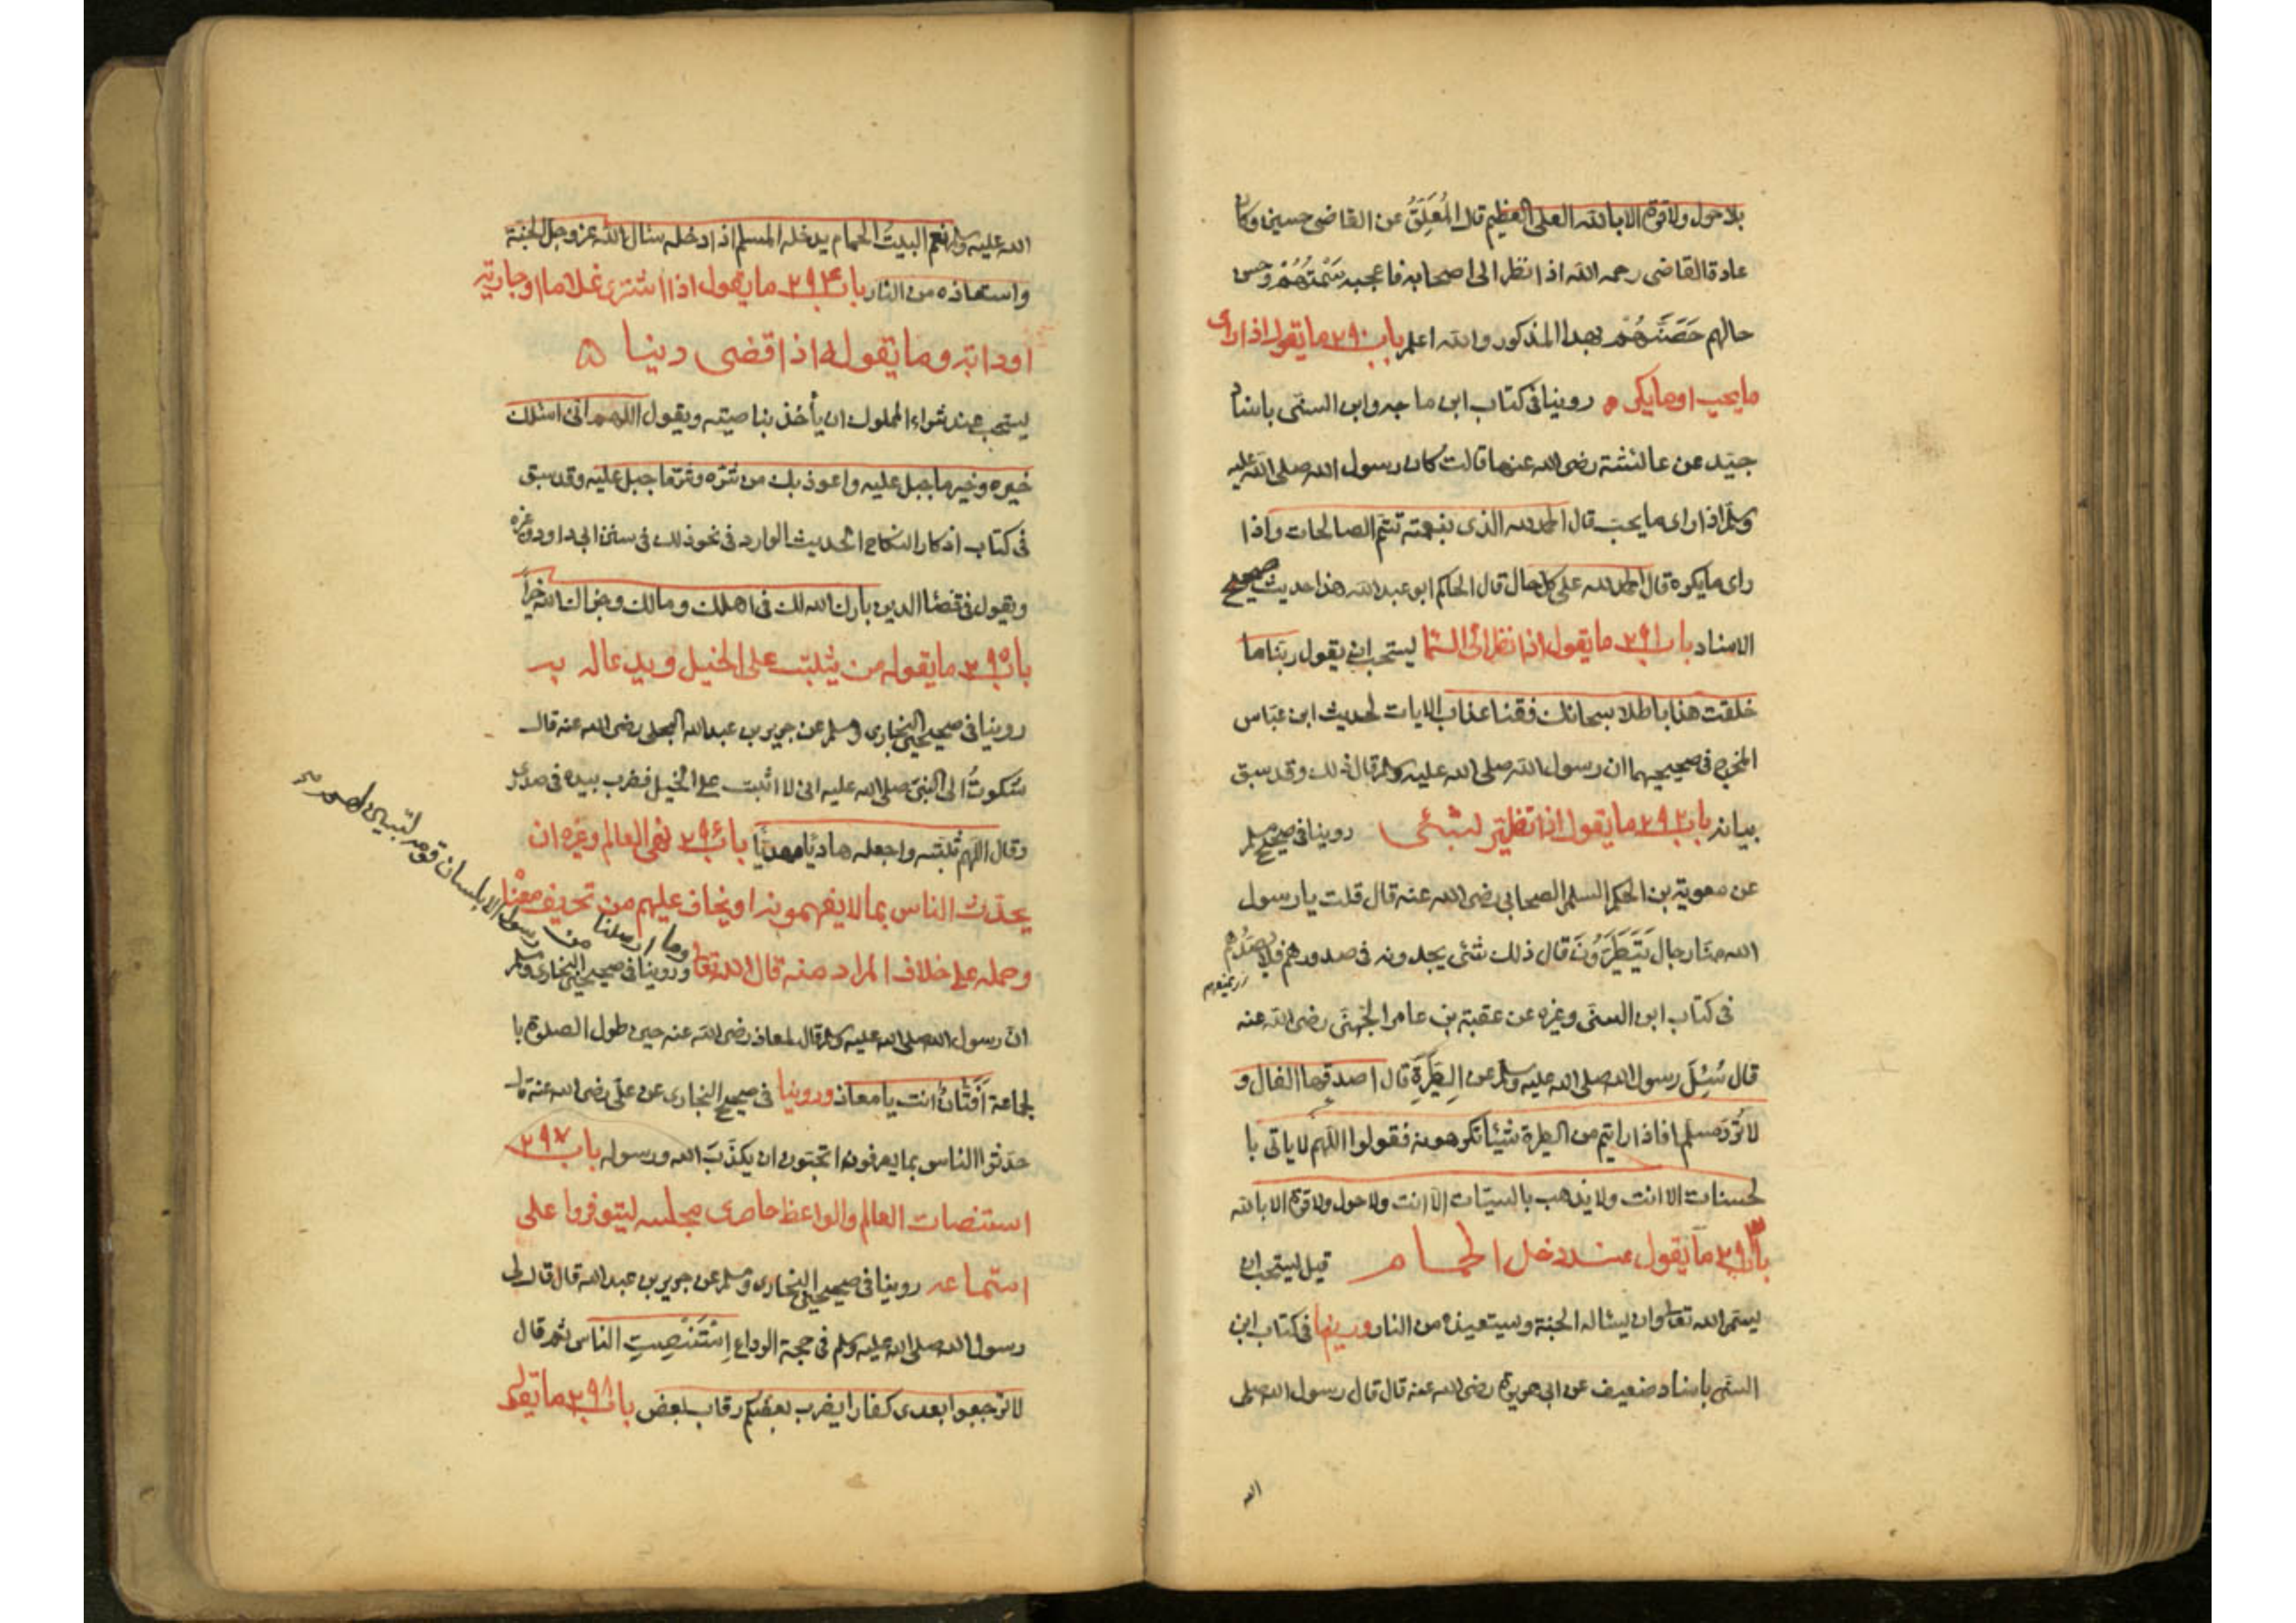 بلا حول ولا قوة الا بالله العلى العظيم قال المُعَلِّقُ عن القاضى حسين وكان
عادة القاضى رحمه الله اذا نظر الى اصحابه فاعجبه سَمْتُهُمْ وحسن
حالهم حَصَّنَهُمْ بهذا المذكور والله اعلم باب ٢٩٠ ما يقول اذا راى
ما يحب او ما يكره روينا فى كتاب ابن ماجه وابن السنى باسناد
جيّد عن عائشة رضى الله عنها قالت كان رسول الله صلى الله عليه
وسلم اذا راى ما يحب قال الحمد لله الذى بنعمته تتم الصالحات واذا
راى ما يكره قال الحمد لله على كل حال قال الحاكم ابو عبد الله هذا حديث صحيح
الاسناد باب ٢٩١ ما يقول اذا نظر الى السما يستحب ان يقول ربنا ما
خلقت هذا باطلا سبحانك فقنا عذاب الايات لحديث ابن عبّاس
المخرج فى صحيحيهما ان رسول الله صلى الله عليه وسلم قال ذلك وقد سبق
بيانه باب ٢٩٢ ما يقول اذا تطير بشئى روينا فى صحيح مسلم
عن معوية بن الحكم السلمى الصحابى رضى الله عنه قال قلت يا رسول
الله منّا رجال يَتَطَيَّرُونَ قال ذلك شئى يجدونه فى صدورهم فلا يصدّهم
فى كتاب ابن السنى وغيره عن عقبة بن عامر الجُهنى رضى الله عنه
قال سُئِلَ رسول الله صلى الله عليه وسلم عن الطِيَرَةِ قال اصدقها الفال و
لا تُردّ مسلما فاذا رايتم من الطيرة شيئا تكرهونه فقولوا اللهم لا ياتى با
لحسنات الا انت ولا يذهب بالسيّات الّا انت ولا حول ولا قوة الا بالله
باب ٢٩٣ ما يقول عند دخل الحمام قيل يستحب ان
يسمى الله تعالى وان يساله الجنة ويستعيذه من النار وروينا فى كتاب ابن
السنى باسناد ضعيف عن ابى هريرة رضى الله عنه قال قال رسول الله صلى
الله
الله عليه وسلم نعم البيتُ الحمام يدخله المسلم اذا دخله سئال الله عز وجل الجنة
واستعاذه من النار باب ٢٩٤ ما يقول اذا اشترى غلاما او جارية
او دابة وما يقوله اذا قضى دينا
يستحب عند شراء المملوك ان يأخذ بناصيته ويقول اللهم انى اسئلك
خيره وخير ما جبل عليه واعوذ بك من شرّه وشرّ ما جبل عليه وقد سبق
فى كتاب اذكار النكاح الحديث الوارد فى نحو ذلك فى سنن ابى داود وغيره
ويقول فى قضئا الدين بارك الله لك فى اهلك ومالك وجزاك الله خيراً
باب ٢٩٥ ما يقوله من يثبت على الخيل ويدعا له به
روينا فى صحيحى البخارى ومسلم عن جرير بن عبد الله البجلى رضى الله عنه قال
شكوتُ الى النبى صلى الله عليه انى لا اثبت على الخيل فضرب بيده فى صدرى
وقال اللهم ثبّته واجعله هاديًا مهديًا باب ٢٩٦ نهى العالم وغيره ان
يحدّث الناس بما لا يفهمونه او يخاف عليهم من تحريف معناه
وحمله على خلاف المراد منه قال الله تعالى وروينا فى صحيحى البخارى ومسلم
وما ارسلنا من رسول الا بلسان قومه ليبيّن لهم
انّ رسول الله صلى الله عليه وسلم قال لمعاذ رضى الله عنه حين طول الصلوة با
لجاعة اَفَتّانٌ انت يا معاذ وروينا فى صحيح البخارى عن على رضى الله عنه قال
حدّثوا الناس بما يعرفون اتحبّون ان يكذّبَ الله ورسوله باب ٢٩٧
استنصات العالم والواعظ حاضرى مجلسه ليتوفروا على
استماعه روينا فى صحيحى البخارى ومسلم عن جرير بن عبد الله قال قال لى
رسول الله صلى الله عليه وسلم فى حجة الوداع اِسْتَنْصِتِ الناس ثم قال
لا ترجعوا بعدى كفارا يضرب بعضكم رقاب بعض باب ٢٩٨ ما يقول